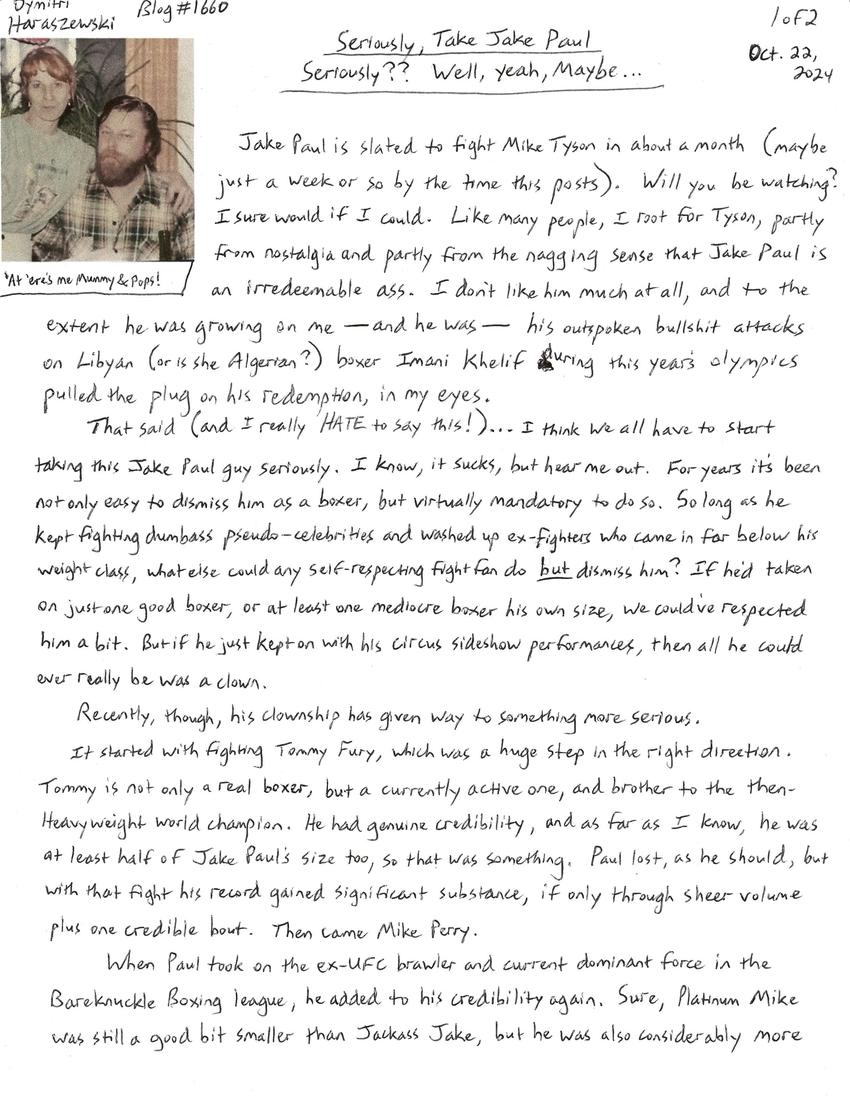 Dymitri
Haraszewski
Blog #1660
1 of 2
Oct. 22,
2024
Seriously, Take Jake Paul
Seriously?? Well, yeah, Maybe...
'At 'ere's me Mummy & Pops!
Jake Paul is slated to fight Mike Tyson in about a month (maybe
just a week or so by the time this posts). Will you be watching?
I sure would if I could. Like many people, I root for Tyson, partly
from nostalgia and partly from the nagging sense that Jake Paul is
an irredeemable ass. I don't like him much at all, and to the
extent he was growing on me — and he was — his outspoken bullshit attacks
on Libyan (or is she Algerian?) boxer Imani Khelif during this year's olympics
pulled the plug on his redemption, in my eyes.
That said (and I really HATE to say this!)... I think we all have to start
taking this Jake Paul guy seriously. I know, it sucks, but hear me out. For years it's been
not only easy to dismiss him as a boxer, but virtually mandatory to do so. So long as he
kept fighting dumbass pseudo-celebrities and washed up ex-fighters who came in far below his
weight class, what else could any self-respecting fight fan do but dismiss him? If he'd taken
on just one good boxer, or at least one mediocre boxer his own size, we could've respected
him a bit. But if he just kept on with his circus sideshow performances, then all he could
ever really be was a clown.
Recently, though, his clownship has given way to something more serious.
It started with fighting Tommy Fury, which was a huge step in the right direction.
Tommy is not only a real boxer, but a currently active one, and brother to the then-
Heavyweight world champion. He had genuine credibility, and as far as I know, he was
at least half of Jake Paul's size too, so that was something. Paul lost, as he should, but
with that fight his record gained significant substance, if only through sheer volume
plus one credible bout. Then came Mike Perry.
When Paul took on the ex-UFC brawler and current dominant force in the
Bareknuckle Boxing league, he added to his credibility again. Sure, Platinum Mike
was still a good bit smaller than Jackass Jake, but he was also considerably more